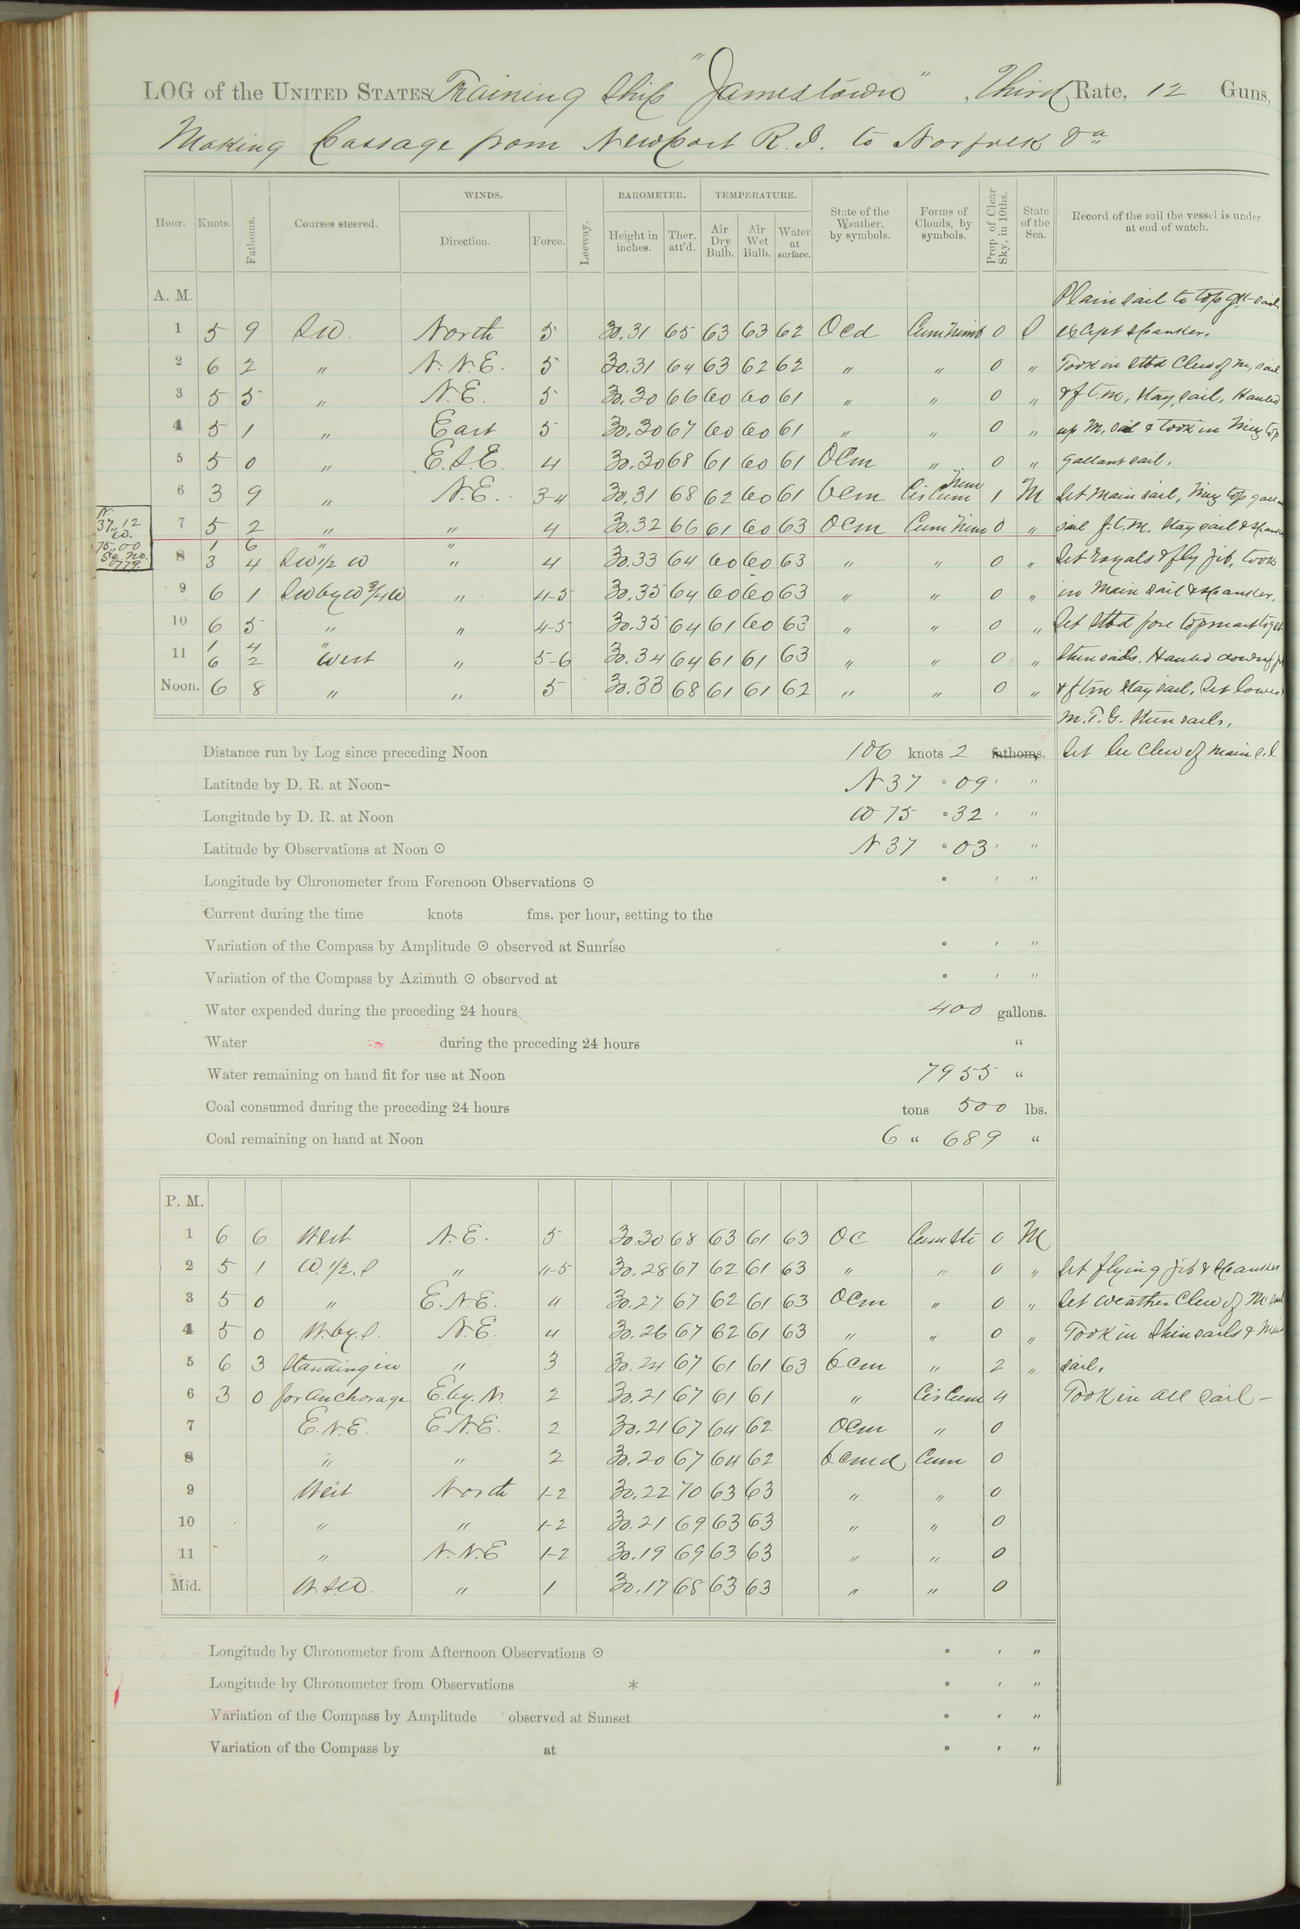 LOG of the UNITED STATES Training Ship "Jamestown", Third Rate, 12 Guns,
Making Passage from Newport R.I. to Norfolk Va
Hour. Knots. Fathoms. Courses steered. WINDS. Direction. Force. Leeway. BAROMETER. Height in inches. Ther. att'd. TEMPERATURE. Air Dry Bulb. Air Wet Bulb. Water at surface. State of the Weather, by symbols. Forms of Clouds, by symbols. Prop. of Clear Sky, in 10ths. State of the Sea. Record of the sail the vessel is under at end of watch.
A. M. Plain sail to top gt-sails
1 5 9 S.W. North 5 30.31 65 63 63 62 Ocd Cum Nimb 0 S except spanker.
2 6 2 " N.N.E. 5 30.31 64 63 62 62 " " 0 " Took in stbd Clew of M. sail
3 5 5 " N.E. 5 30.30 66 60 60 61 " " 0 " & f.t.m. stay sail. Hauled
4 5 1 " East 5 30.30 67 60 60 61 " " 0 " up M. sail & took in Miz top
5 5 0 " E.S.E. 4 30.30 68 61 60 61 Ocm " 0 " gallant sail.
6 3 9 " N.E. 3-4 30.31 68 62 60 61 bcm Cir Cum Nim 1 M Set Main sail, Miz top gall
N. 37.12 W. 75.00 Sig. No. 779
7 5 2 " " 4 30.32 66 61 60 63 Ocm Cum Nim 0 " sail f.t.m. stay sail & spanker
1 6 " "
8 3 4 SW 1/2 W " 4 30.33 64 60 60 63 " " 0 " Set royals & fly jib, took
9 6 1 SW by W 3/4 W " 4-5 30.35 64 60 60 63 " " 0 " in Main sail & spanker.
10 6 5 " " 4-5 30.35 64 61 60 63 " " 0 " Set Stbd fore topmast to gat
1 4 "
11 6 2 West " 5-6 30.34 64 61 61 63 " " 0 " stun sails. Hauled down
Noon. 6 8 " " 5 30.33 68 61 61 62 " " 0 " & ftm stay sail. Set lower
M. T. G. Stun sails.
Distance run by Log since preceding Noon 106 knots 2 fathoms. Set lee Clew of Main sail
Latitude by D. R. at Noon N 37 ° 09 ' "
Longitude by D. R. at Noon W 75 ° 32 ' "
Latitude by Observations at Noon ☉ N 37 ° 03 ' "
Longitude by Chronometer from Forenoon Observations ☉ ° ' "
Current during the time knots fms. per hour, setting to the
Variation of the Compass by Amplitude ☉ observed at Sunrise ° ' "
Variation of the Compass by Azimuth ☉ observed at ° ' "
Water expended during the preceding 24 hours 400 gallons.
Water during the preceding 24 hours "
Water remaining on hand fit for use at Noon 7955 "
Coal consumed during the preceding 24 hours tons 500 lbs.
Coal remaining on hand at Noon 6 " 689 "
P. M.
1 6 6 West N.E. 5 30.30 68 63 61 63 OC Cum Str 0 M
2 5 1 W. 1/2 S " 4-5 30.28 67 62 61 63 " " 0 " Set flying jib & Spanker
3 5 0 " E.N.E. 4 30.27 67 62 61 63 Ocm " 0 " Set Weather Clew of M. sail
4 5 0 W. by S. N.E. 4 30.26 67 62 61 63 " " 0 " Took in Stun sails & Main
5 6 3 Standing in " 3 30.24 67 61 61 63 bcm " 2 " sail.
6 3 0 for anchorage E. by N. 2 30.21 67 61 61 " Cir Cum 4 Took in all sail -
7 E.N.E. E.N.E. 2 30.21 67 64 62 Ocm " 0
8 " " 2 30.20 67 64 62 bcmd Cum 0
9 West North 1-2 30.22 70 63 63 " " 0
10 " " 1-2 30.21 69 63 63 " " 0
11 " N.N.E 1-2 30.19 69 63 63 " " 0
Mid. W.SW. " 1 30.17 68 63 63 " " 0
Longitude by Chronometer from Afternoon Observations ☉ ° ' "
Longitude by Chronometer from Observations * ° ' "
Variation of the Compass by Amplitude observed at Sunset ° ' "
Variation of the Compass by at ° ' "